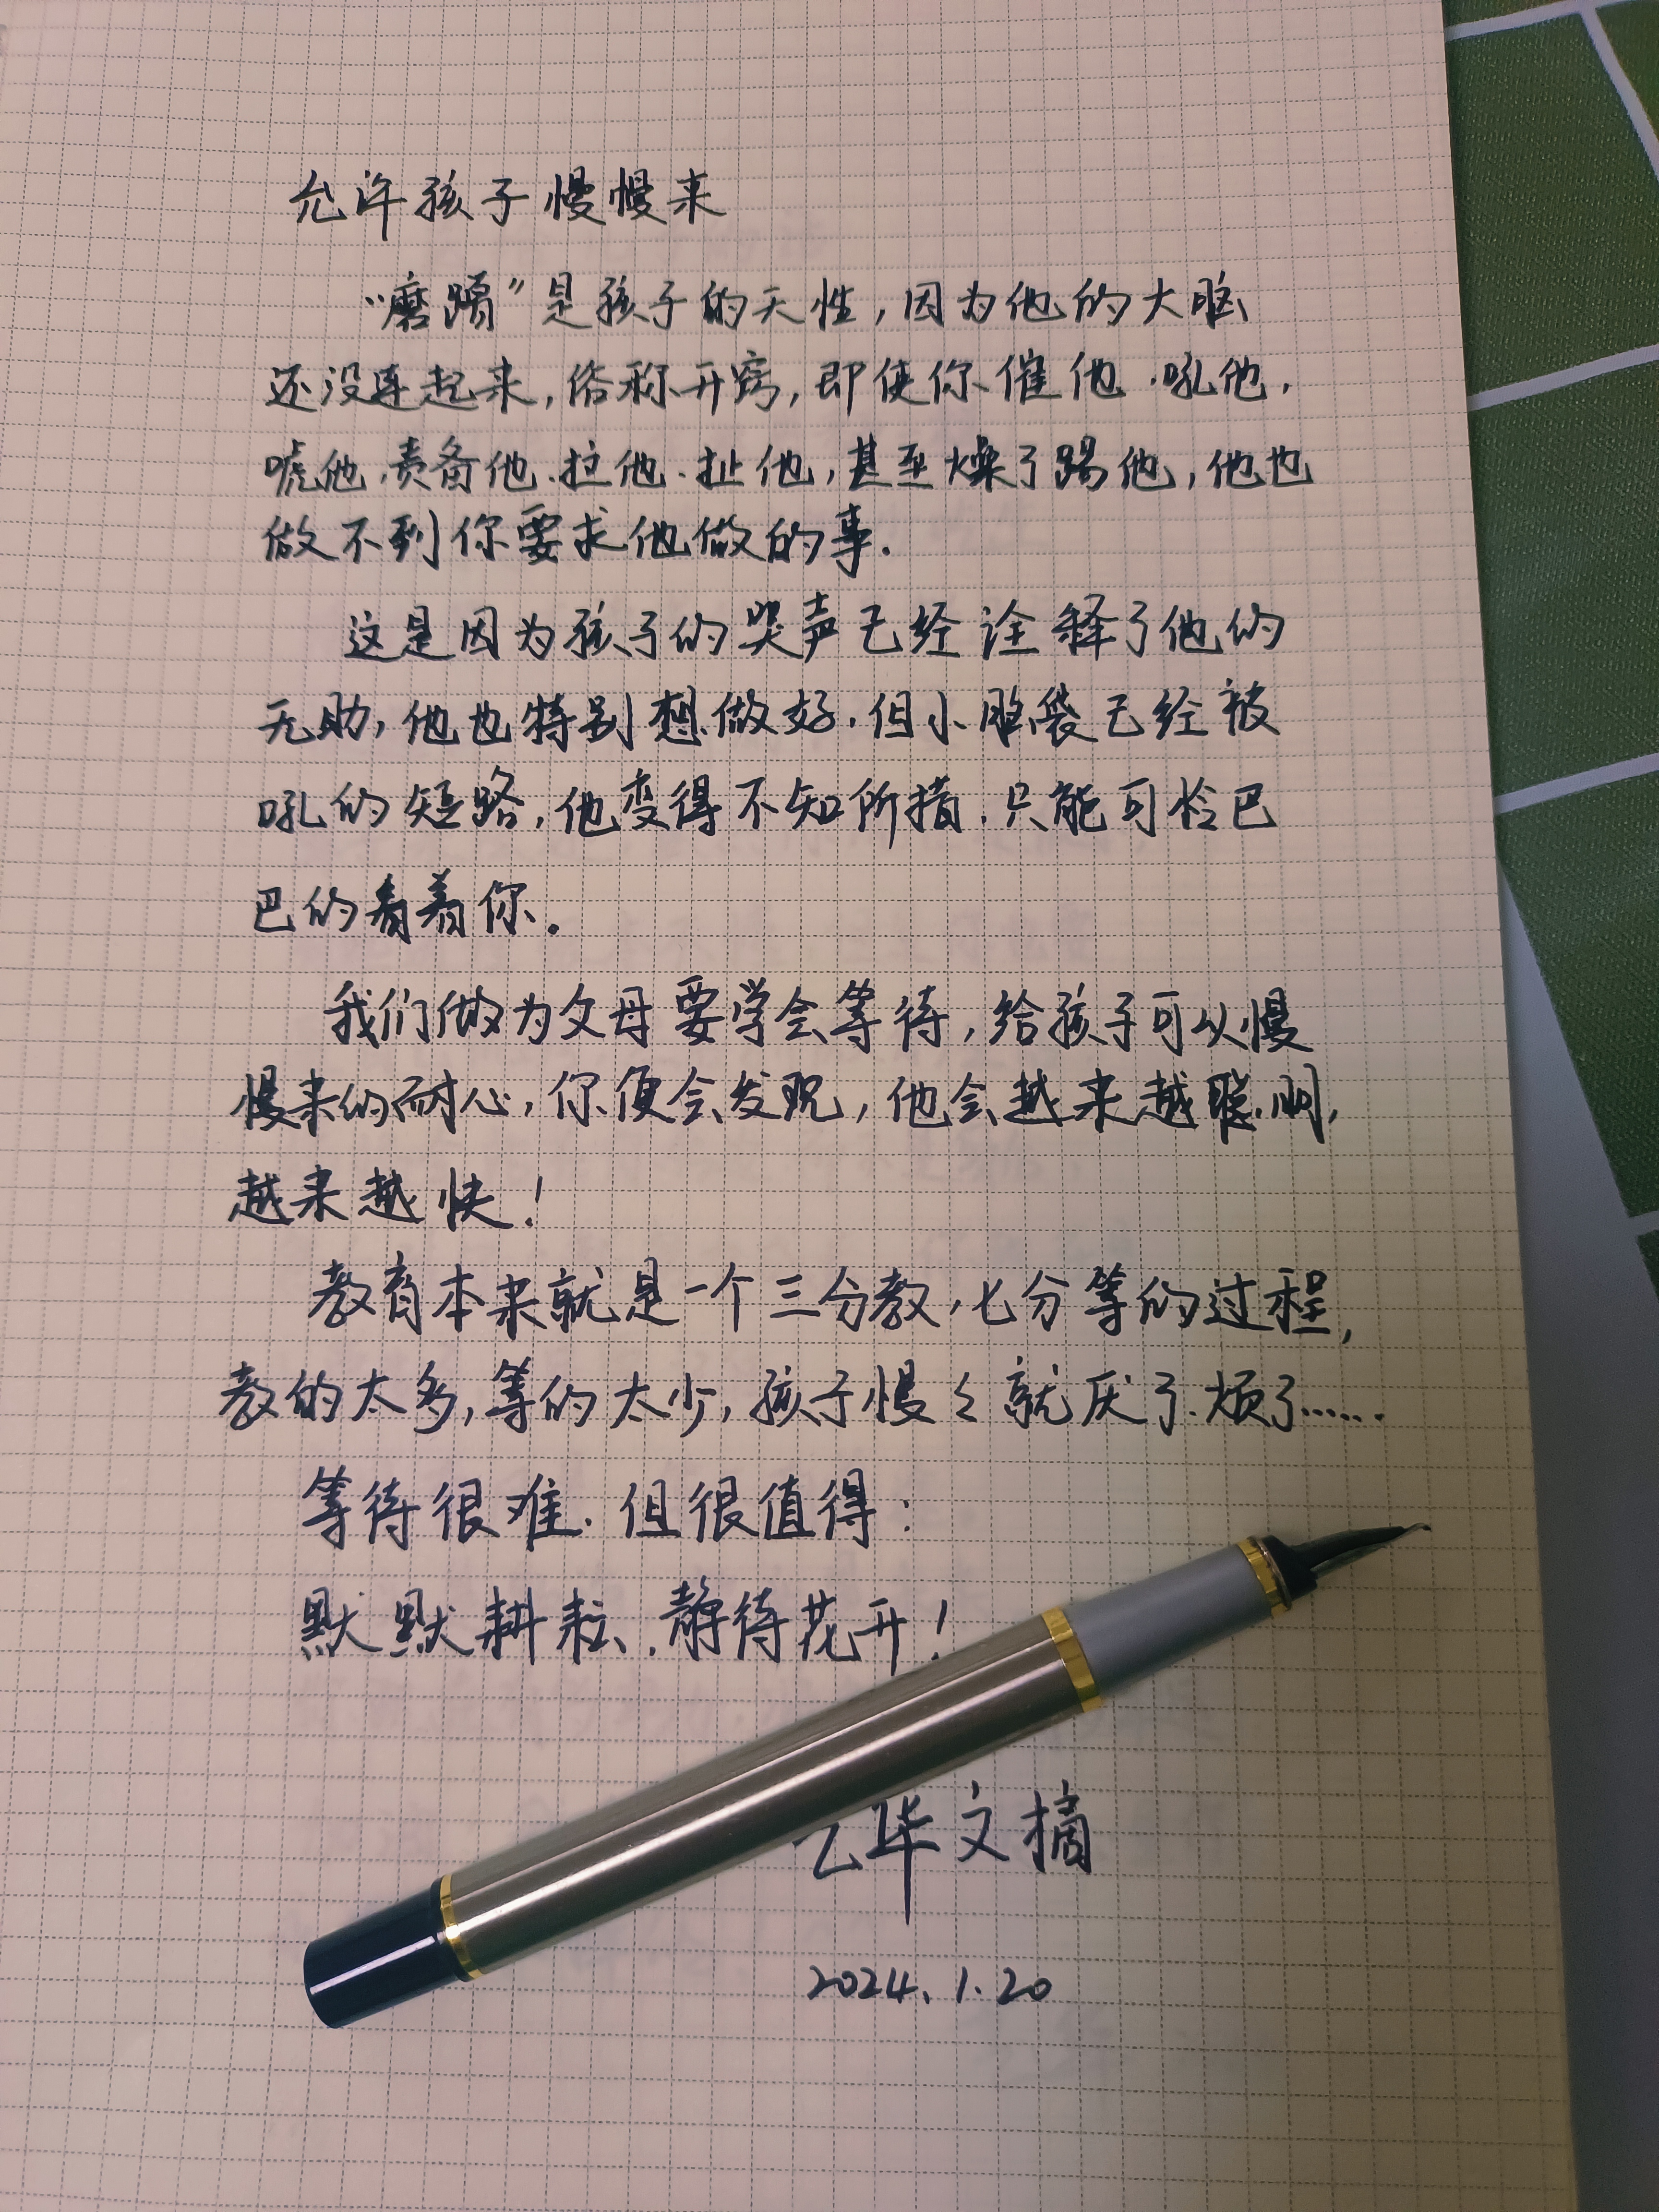 允许孩子慢慢来
“磨蹭”是孩子的天性,因为他的大脑
还没连起来,俗称开窍,即使你催他、吼他,
唬他、责备他、拉他、扯他,甚至燥了踢他,他也
做不到你要求他做的事.
这是因为孩子的哭声已经诠释了他的
无助,他也特别想做好.但小脑袋已经被
吼的短路,他变得不知所措.只能可怜巴
巴的看着你。
我们做为父母要学会等待,给孩子可以慢
慢来的耐心,你便会发现,他会越来越聪明,
越来越快!
教育本来就是一个三分教,七分等的过程,
教的太多,等的太少,孩子慢々就厌了.烦了……
等待很难.但很值得:
默默耕耘.静待花开!
华文摘
2024.1.20